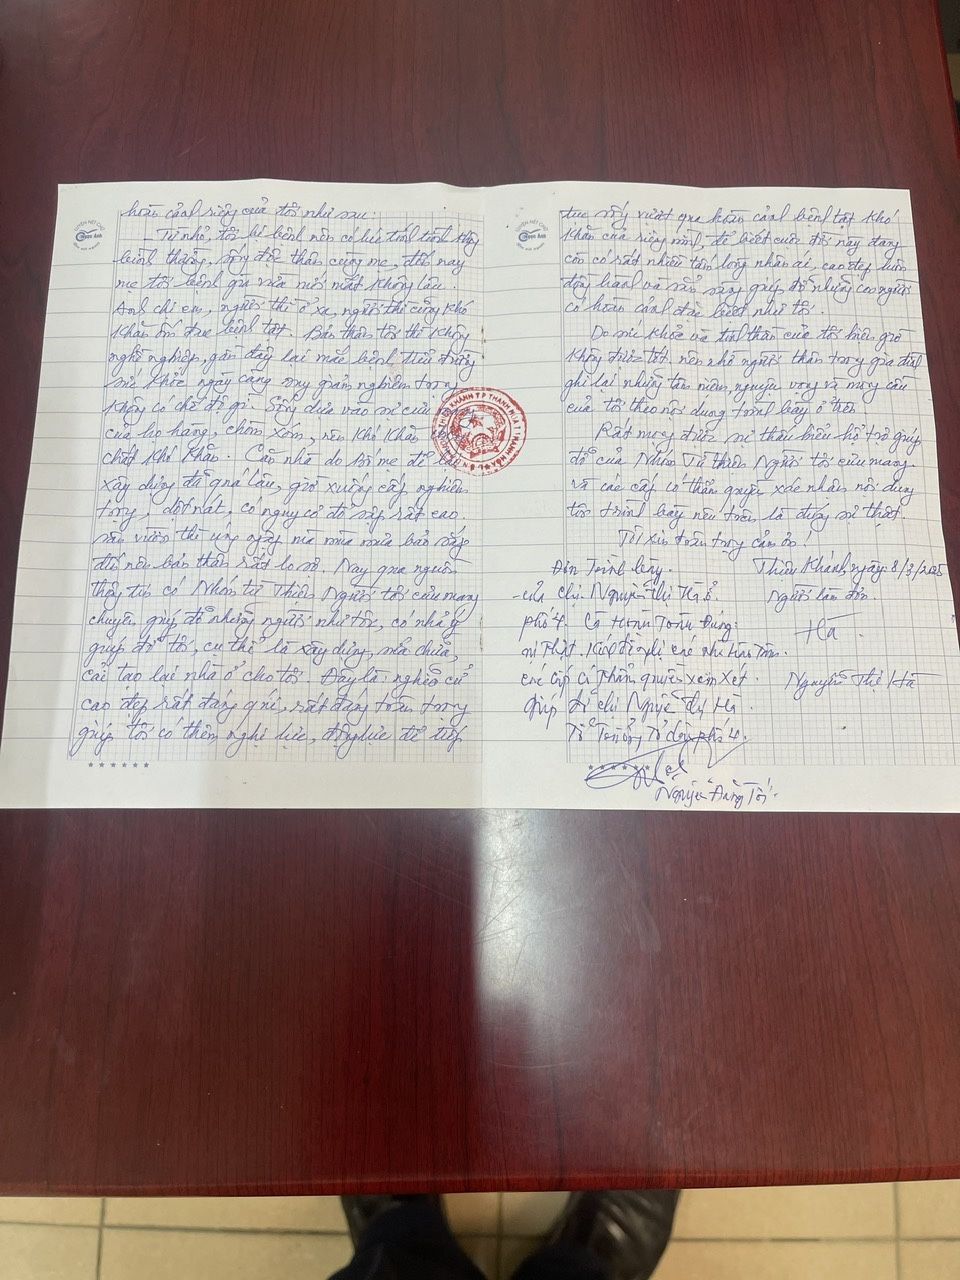 hoàn cảnh riêng của tôi như sau:
- Từ nhỏ, tôi bị bệnh nên có lúc tinh thần không
bình thường, sống độc thân cùng mẹ, đến nay
mẹ tôi bệnh già vừa mới mất không lâu.
Anh chị em, người thì ở xa, người thì cũng khó
khăn ốm đau bệnh tật. Bản thân tôi thì không
nghề nghiệp, gần đây lại mắc bệnh tiểu đường
sức khỏe ngày càng suy giảm nghiêm trọng
không có chế độ gì. Sống dựa vào sự cưu mang
của họ hàng, chòm xóm, nên khó khăn
chất khó khăn. Căn nhà do bố mẹ để lại
xây dựng đã quá lâu, giờ xuống cấp nghiêm
trọng, dột nát, có nguy cơ đổ sập rất cao,
sân vườn thì úng ngập mà mùa mưa bão sắp
đến nên bản thân rất lo sợ. Nay qua nguồn
thông tin có Nhóm từ Thiện Người tôi cưu mang
chuyên giúp đỡ những người như tôi, có nhã ý
giúp đỡ tôi, cụ thể là xây dựng, sửa chữa,
cải tạo lại nhà ở cho tôi. Đây là nghĩa cử
cao đẹp rất đáng quí, rất đáng trân trọng
giúp tôi có thêm nghị lực, động lực để tiếp
tục sống vượt qua hoàn cảnh bệnh tật khó
khăn của riêng mình, để biết cuộc đời này đang
còn có rất nhiều tấm lòng nhân ái, cao đẹp luôn
đồng hành và sẵn sàng giúp đỡ những con người
có hoàn cảnh đặc biệt như tôi.
Do sức khỏe và tinh thần của tôi hiện giờ
không được tốt, nên nhờ người thân trong gia đình
ghi lại những tâm niệm, nguyện vọng và mong cầu
của tôi theo nội dung trình bày ở trên.
Rất mong được sự thấu hiểu hỗ trợ giúp
đỡ của Nhóm Từ thiện Người tôi cưu mang
và các cấp có thẩm quyền xác nhận nội dung
tôi trình bày nêu trên là đúng sự thật.
Tôi xin trân trọng cảm ơn!
Thiệu Khánh, ngày 8/3/2025
Người làm đơn
Hà
Nguyễn Thị Hà
Đơn trình bày
của chị Nguyễn Thị Hà ở
phố 4. Là hoàn toàn đúng
sự thật. Kính đề nghị các nhà Hảo Tâm.
các cấp có thẩm quyền xem xét.
giúp đỡ chị Nguyễn Thị Hà
Tổ Trưởng Tổ dân phố 4.
Nguyễn Đăng Tới